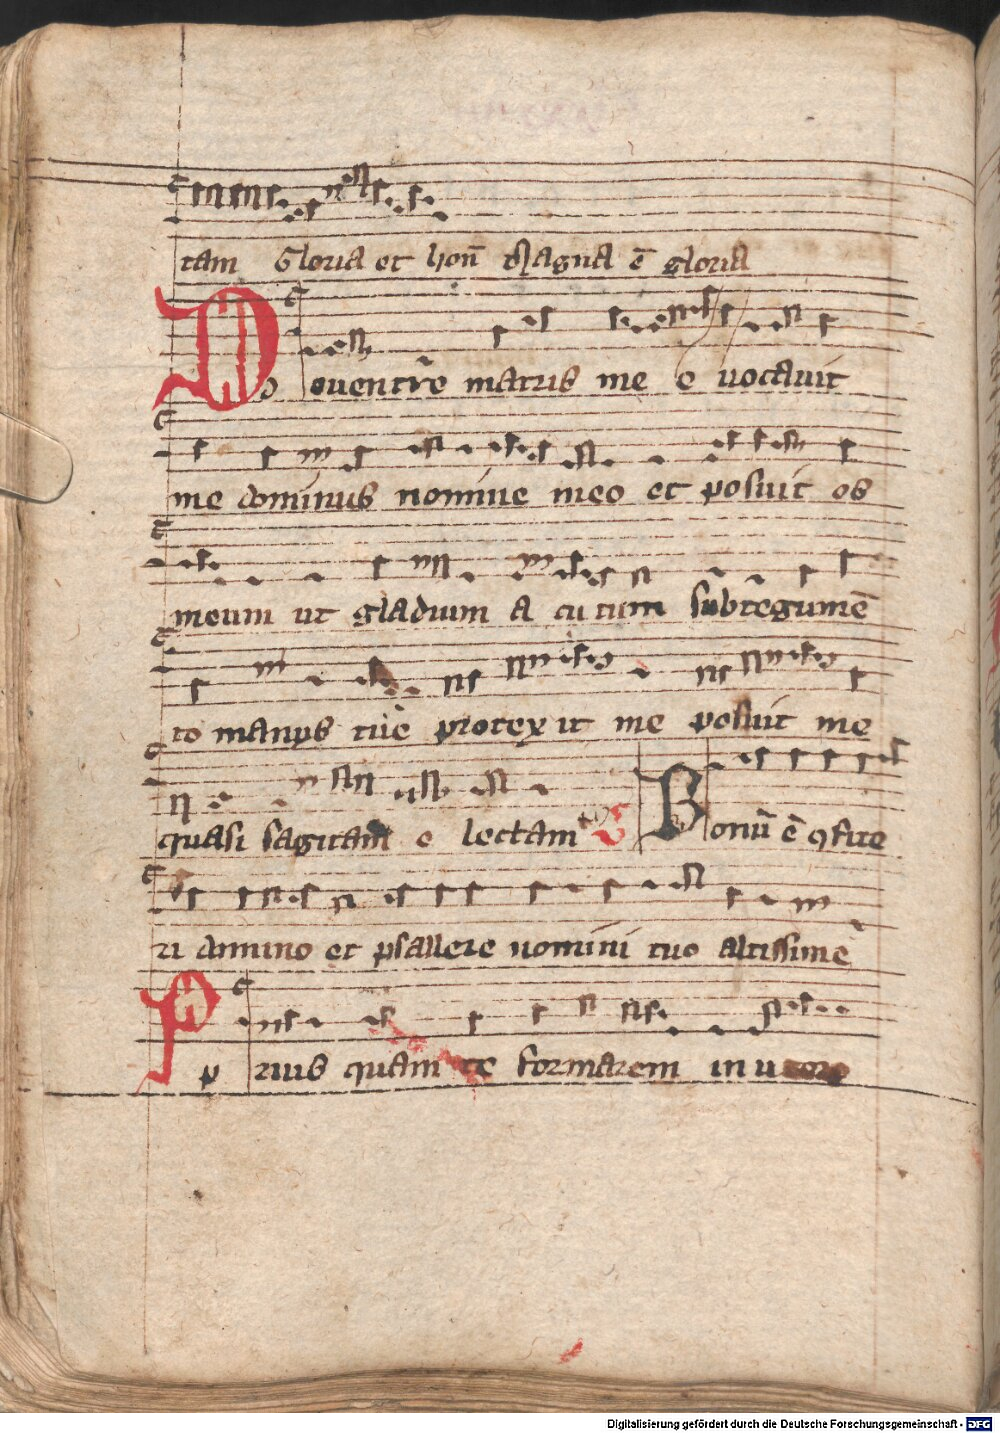 tam Gloria et honō Magna ē gloria
De ouentre matris me e uocauit
me dominus nomine meo et posuit os
meum ut gladium a cu tum subtegumē
to manus tue protex it me posuit me
quasi sagitam e lectam Bonū ē ꝯfite
ri domino et psallere nomini tuo altissime
P p rius quam te formarem in u tero
Digitalisierung gefördert durch die Deutsche Forschungsgemeinschaft - DFG